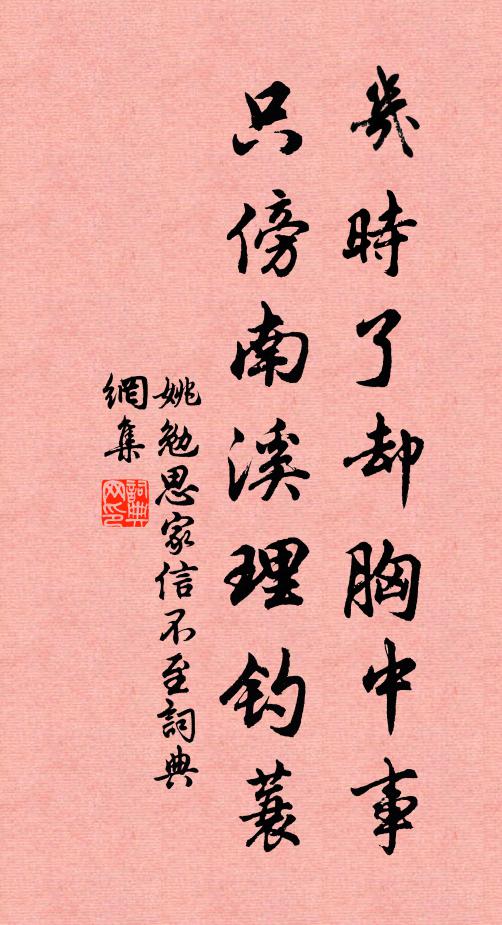 幾時了却胸中事
只傍南溪理釣蓑
姚勉思家信不至詞典
網集
詞典
网印